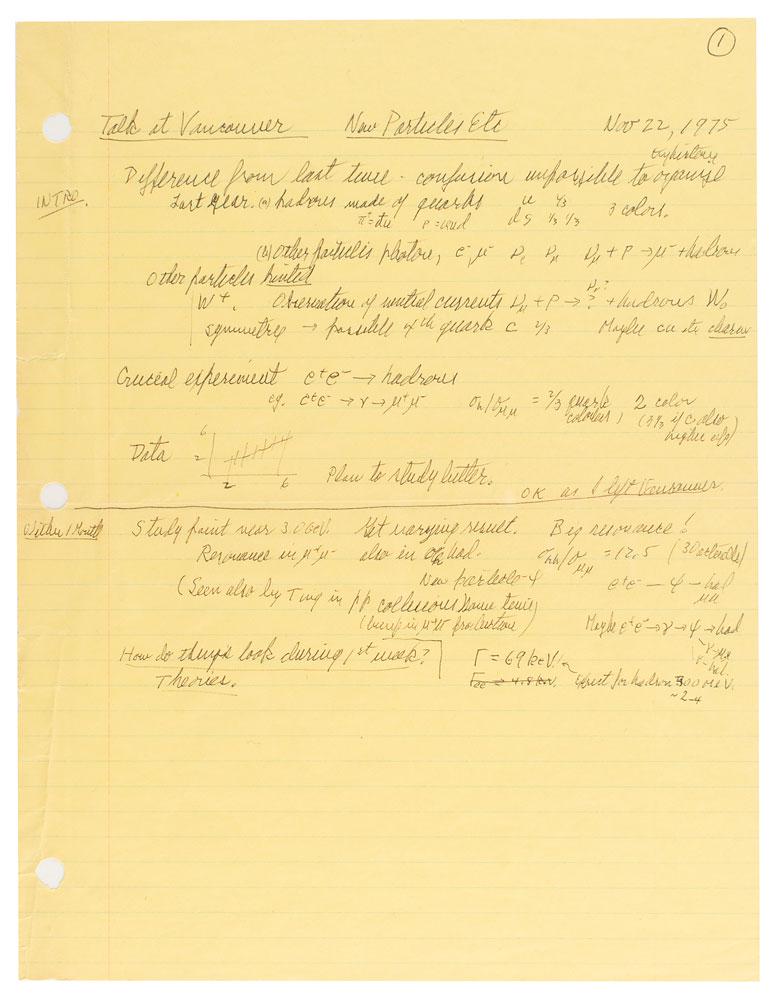 1
Talk at Vancouver New Particles Etc Nov 22, 1975
Difference from last time - confusion impossible to organize
INTRO. Last Year. (a) hadrons made of quarks u 2/3 3 colors.
d s 1/3 1/3
(b) Other particles photon, e⁻ μ⁻ ν_e ν_μ ν_μ + P → μ⁻ + hadrons
Other particles hinted
W⁺. Observation of neutral currents ν_μ + P → ? + hadrons W₀
ν_μ?
symmetry → possible 4th quark c 2/3 Maybe call it charm
Crucial experiment e⁺e⁻ → hadrons
eg. e⁺e⁻ → γ → μ⁺μ⁻ σ_h/σ_μμ = 2/3 quark colored, 2 color
(3⅓ if c also
higher up)
Data 6 2 2 6 Plan to study better.
OK as I left Vancouver.
Within 1 Month Study point near 3.0 GeV. Get varying result. Big resonance!
Resonance in μ⁺μ⁻ also in had. σ_h/σ_μμ = 12.5 (30 )
New particle ψ e⁺e⁻ – ψ – had
μμ
(Seen also by Ting in pp collisions same time)
(bump in μ⁺μ⁻ production) Maybe e⁺e⁻ → γ → ψ → had
How do things look during 1st week? Γ = 69 keV
Theories. Γ_ee = 4.8 keV. expect for hadron 300 MeV.
~ 2-4